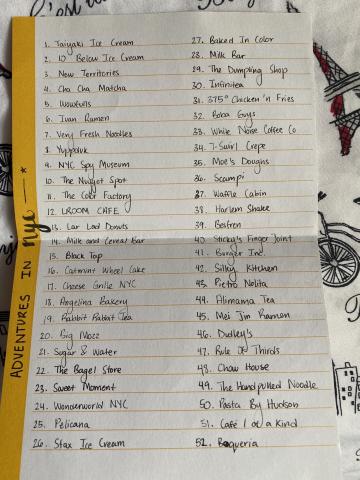 ADVENTURES IN nyc
1. Taiyaki Ice Cream
2. 10° Below Ice Cream
3. New Territories
4. Cha Cha Matcha
5. Wowfulls
6. Ivan Ramen
7. Very Fresh Noodles
8. Yuppoluk
9. NYC Spy Museum
10. The Nugget Spot
11. The Color Factory
12. LROOM CAFE
13. Liar Liar Donuts
14. Milk and Cereal Bar
15. Black Tap
16. Catmint Wheel Cake
17. Cheese Grille NYC
18. Angelina Bakery
19. Rabbit Rabbit Tea
20. Big Mozz
21. Sugar & Water
22. The Bagel Store
23. Sweet Moment
24. Wonderworld NYC
25. Pelicana
26. Stax Ice Cream
27. Baked In Color
28. Milk Bar
29. The Dumpling Shop
30. Infinitea
31. 375° Chicken 'n Fries
32. Boba Guys
33. White Noise Coffee Co
34. T-Swirl Crepe
35. Moe's Doughs
36. Scampi
37. Waffle Cabin
38. Harlem Shake
39. Besfren
40. Sticky's Finger Joint
41. Burger Inc.
42. Silky Kitchen
43. Pietro Nolita
44. Alimama Tea
45. Mei Jin Ramen
46. Dudley's
47. Rule Of Thirds
48. Chow House
49. The Handpulled Noodle
50. Pasta By Hudson
51. Cafe 1 of a Kind
52. Boqueria